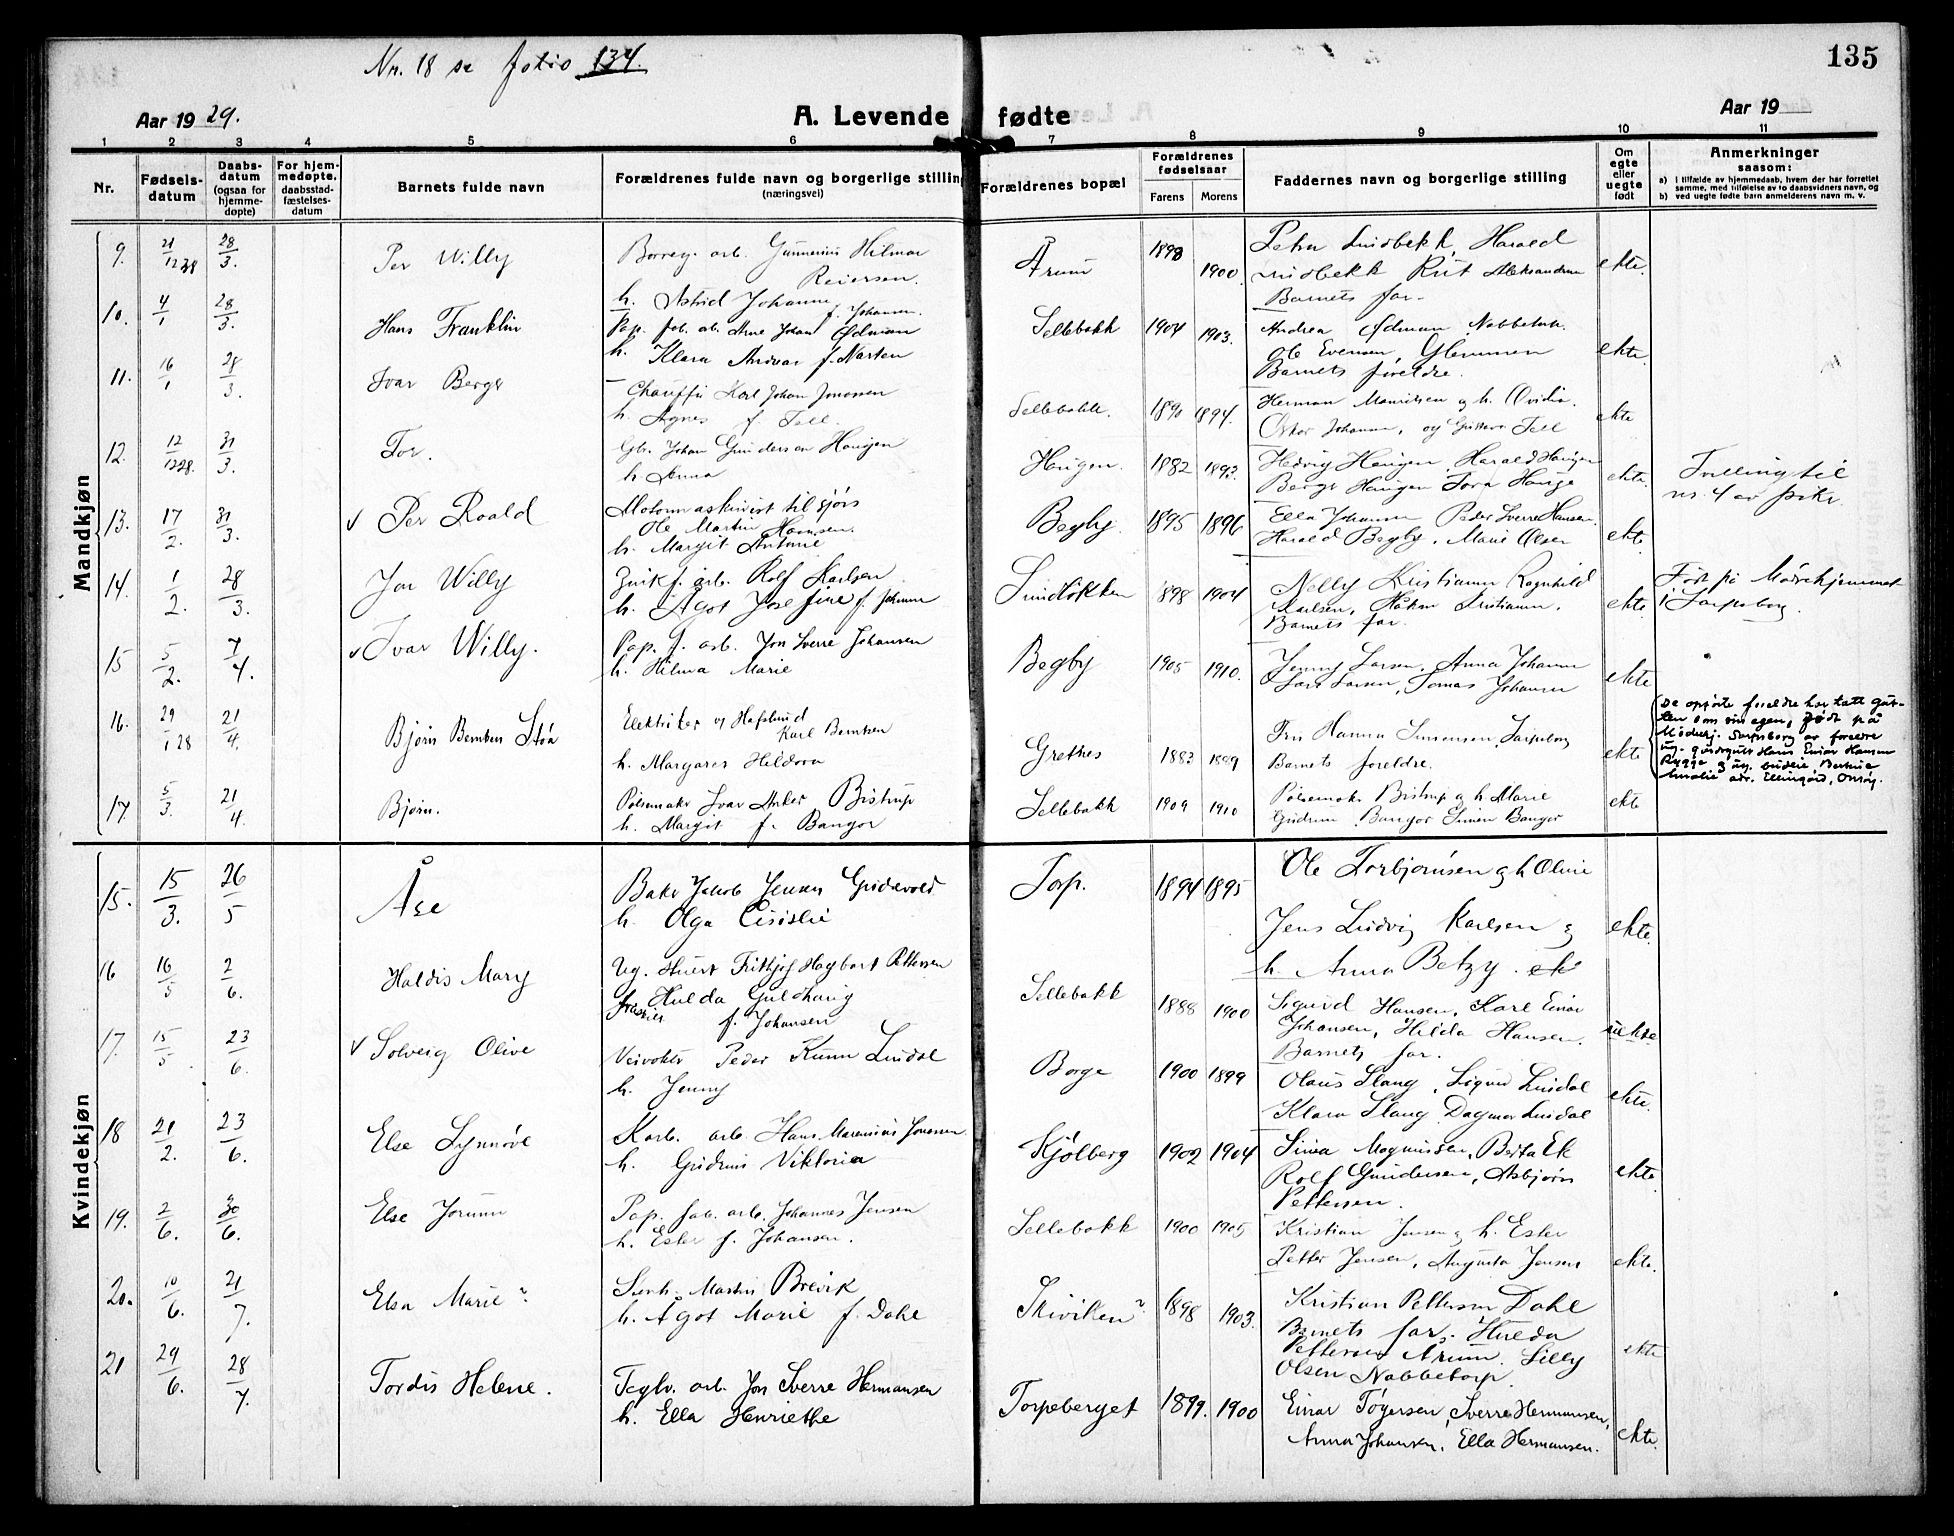 Nr. 18 se folio 134.
135
Aar 19 29.
A. Levende fødte
Aar 19
1 2 3 4 5 6 7 8 9 10 11
Nr.
Fødsels-
datum
Daabs-
datum
(ogsaa for
hjemme-
døpte)
For hjem-
medøpte.
daabsstad-
fæstelses-
datum
Barnets fulde navn
Forældrenes fulde navn og borgerlige stilling
(næringsvei)
Forældrenes bopæl
Forældrenes
fødselsaar
Farens Morens
Faddernes navn og borgerlige stilling
Om
egte
eller
uegte
født
Anmerkninger
saasom:
a) i tilfælde av hjemmedaab, hvem der har forrettet
samme, med tilføielse av to daabsvidners navn, og
b) ved uegte fødte barn anmelderens navn m. v.
Mandkjøn
9. 21/12 28 28/3. Per Willy
Borreg. arb. Gunnerius Hilmar
Reiersen.
h. Astrid Johanne f. Johann.
Årum 1898 1900.
Petra Lindbekk, Harald
Lindbekk Rut Aleksandrine
Barnets far.
ekte.
10. 4/1 28/3. Hans Franklin
Pap. fab. arb. Arne Johan Ødman
h. Klara f. Narten
Sellebakk 1904 1903.
Andrea Ødman Nabbetorp.
Ole Evensen, Glemmen
Barnets foreldre.
ekte.
11. 16/1 28/3. Ivar Berge
Chauffør Karl Johan Jonassen
h. Agnes f. Tell.
Sellebakk. 1890 1894.
Herman Mauritsen og h. Ovidia.
Oskar Johannes, og Gustava Tell
ekte
12. 12/12 28. 31/3. Tor.
Gb. Johan Gundersen Haugen
h. Anna
Haugen. 1882 1893.
Hedvig Haugen, Harald Haugen
Berge Haugen Tora Hauge
ekte.
Tvilling til
nr. 4 av pike.
13. 17/2. 31/3. v Per Roald
Motormaskinist til sjøs
Ole Martin Hansen.
h. Margit Antonie
Begby. 1895 1896
Ella Johansen Peder Sverre Hansen.
Harald Begby, Marie Olsen
ekte.
14. 1/2. 28/3. Jan Willy
Zinkf. arb. Rolf Karlsen
h. Ågot Josefine f. Johanne
Sundløkken 1898 1904
Nelly Kristianne Ragnhild
Karlsen, Håkon Kristiann.
Barnets far.
ekte.
Født på Mødrehjemmet
i Sarpsborg.
15 5/2. 7/4. v Ivar Willy.
Pap. f. arb. Jon Sverre Johansen
h. Hilma Marie
Begby 1905 1910.
Jenny Larsen, Anna Johanne
Lars Larsen, Tomas Johansen
ekte
16. 29/1 28 21/4. Bjørn Berntsen Støa
Elektriker v/ Hafslund
Karl Berntsen
h. Margares Hildora
Gretnes 1883 1889
Frk Hanna Simensen, Sarpsborg
Barnets foreldre.
ekte
De opførte foreldre har tatt gut-
ten som sin egen, født på
Mødrehj. Sarpsborg av foreldre
ug. gårdsgutt Hans Einar Hansen
Rygge og ug. budeie Bertine
Amalie adr. Ellingård, Onsøy.
17. 5/3. 21/4. Bjørn.
Pølsemaker Ivar Anker Bistrup
h. Margit f. Bangor
Sellebakk 1909 1910
Pølsemaker Bistrup og h. Marie
Gudrun Bangor Simen Bangor
ekte
Kvindekjøn
15. 15/3. 26/5 Åse
Baker Jakob Jensen Gridevold
h. Olga
Torp. 1894 1895
Ole Torbjørnsen og h Oline
Jens Ludvig Karlsen og
h. Anna Betzy.
ekte.
16 16/5 2/6. Haldis Mary
Ug. Frithjof Hagbart Pettersen
fraskilt Hulda Guldhaug
f. Johansen
Sellebakk 1888 1900
Sigurd Hansen, Karl Einar
Johansen, Hilda Hansen.
Barnets far.
uekte
17. 15/5 23/6. v Solveig Olive
Veivokter Peder Kunn Lindal
h. Jenny
Borge 1900 1899
Olaus Slang, Sigurd Lindal
Klara Slang Dagmar Lindal
ekte.
18 21/2. 23/6. Else Synnøve
Karb. arb. Hans Marenius Jonassen
h. Gudrun Viktoria
Kjølberg 1902 1904
Sina Magnussen, Berta Ek
Rolf Gundersen, Asbjørn
Pettersen.
ekte.
19. 2/6. 30/6. Else Jorunn
Pap. fab. arb. Johannes Jensen
h. Ester f. Johansen.
Sellebakk 1900 1905
Kristian Jensen og h. Ester
Petter Jensen, Augusta Jensen
ekte.
20. 10/6. 21/7. Elsa Marie
Martin Brevik
h. Ågot Marie f. Dahl
Skiviken 1898 1903.
Kristian Pettersen Dahl
Barnets far. Hulda
Pettersen Årum. Lilly
Olsen Nabbetorp
ekte
21 29/6. 28/7. Tordis Helene.
Teglv. arb. Jon Sverre Hermansen
h. Ella Henriethe
Torpeberget 1899. 1900
Einar Tøgersen, Sverre Hermansen,
Anna Johansen, Ella Hermansen.
ekte.